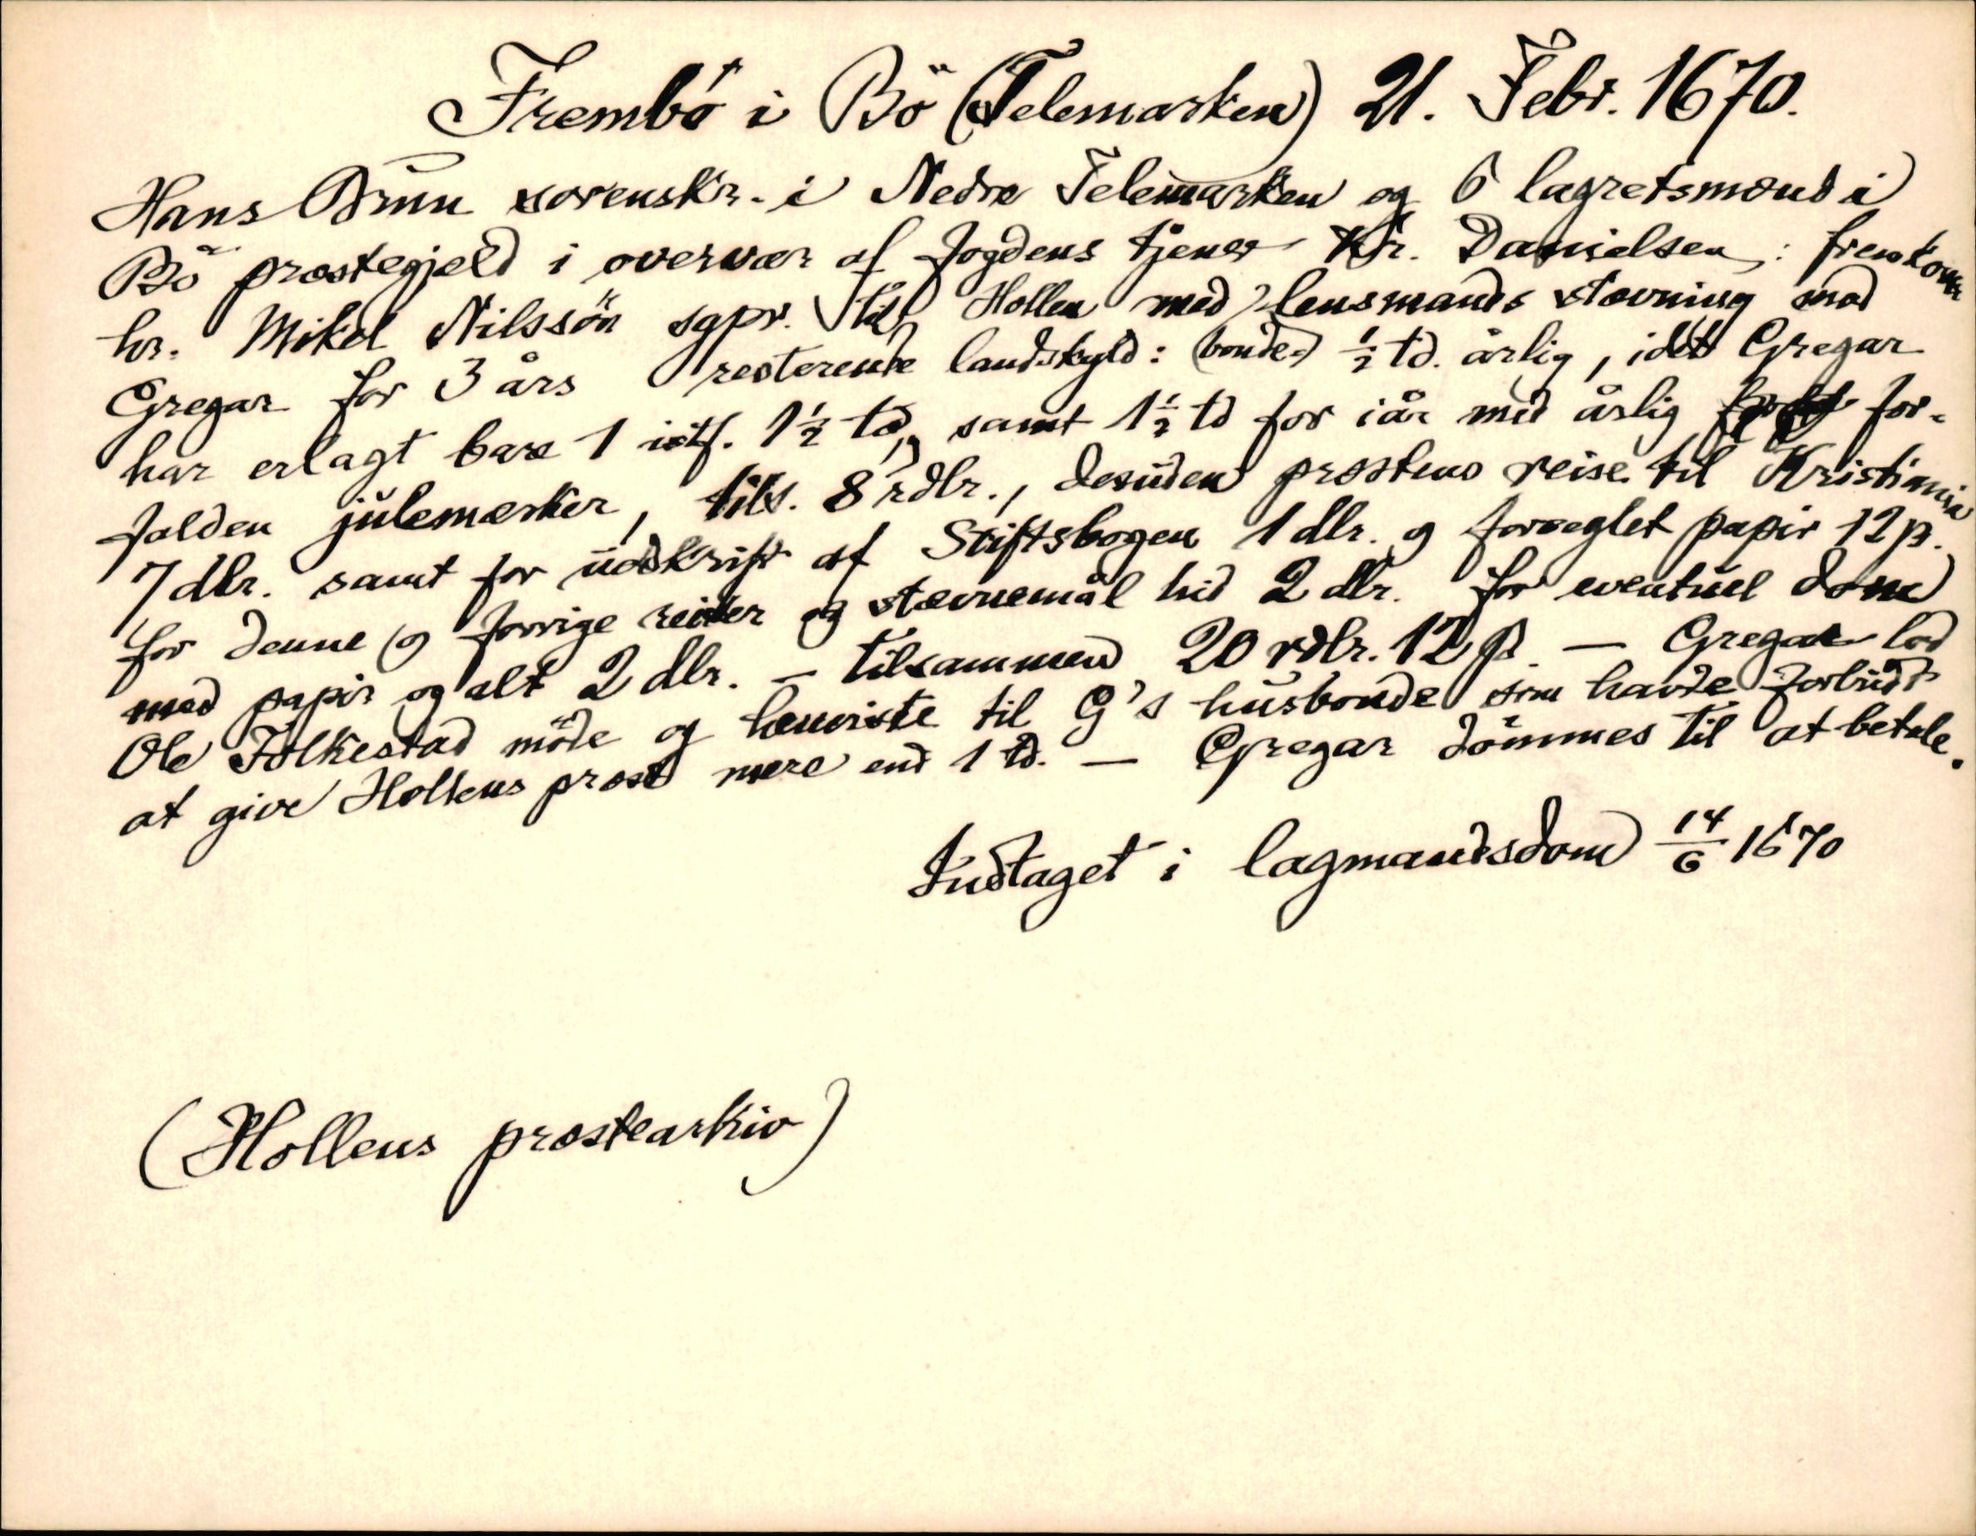 Frembö i Bö (Telemarken) 21. Febr. 1670.
Hans Brun sorenskr. i Nedre Telemarken og 6 lagretsmænd i
Bö præstegjeld i overvær af fogdens tjener Kr. Danielsen: fremkom
hr. Mikel Nilssön sgpr. til Hollen med lensmands stævning mod
Gregar for 3 års resterende landskyld: (bonde) ½ td. årlig, idet Gregar
har erlagt bare 1 istf. 1½ td, samt 1½ td for i år med årlig for-
falden julemærker, tils. 8 rdlr., desuden præstens reise til Kristiania
7 dlr. samt for udskrift af Stiftsbogen 1 dlr. og forseglet papir 12 β.
for denne og forrige reiser og stævnemål hid 2 dlr. for eventuel dom
med papir og alt 2 dlr. – tilsammen 20 rdlr. 12 β. — Gregar lod
Ole Folkestad möde og henviste til G's husbonde som havde forbudt
at give Hollens præst mere end 1 td. — Gregar dömmes til at betale.
Indtaget i lagmandsdom 14/6 1670
(Hollens præstearkiv)